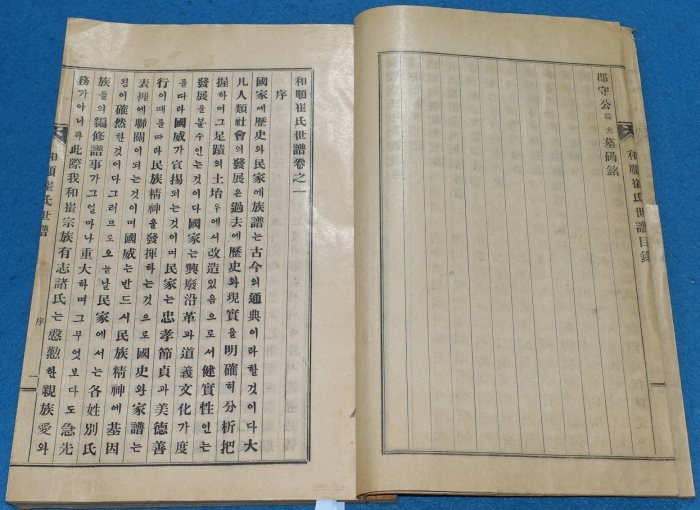 郡守公 益大 墓碣銘
和順崔氏世譜目錄
和順崔氏世譜卷之一
序
國家에歷史와民家에族譜는古今의通典이라할것이다大
凡人類社會의發展은過去에歷史와現實을明確히分析把
握하여그足蹟의土坮우에서改造있음으로서健實性인는
發展을볼수인는것이다國家는興廢沿革과道義文化가度
를따라國威가宣揚되는것이며民家는忠孝節貞과美德善
行이때를따라民族精神을發揮하는것으로國史와家譜는
表裡에聯關이되는것이며國威는반드시民族精神에基因
됨이確然한것이다그러므로오늘날民家에서는各姓別氏
族들의編修譜事가그얼마나重大하며그무엇보다도急先
務가아니라此際我和崔宗族有志諸氏는慇懃한親族愛와
和順崔氏世譜
序
一